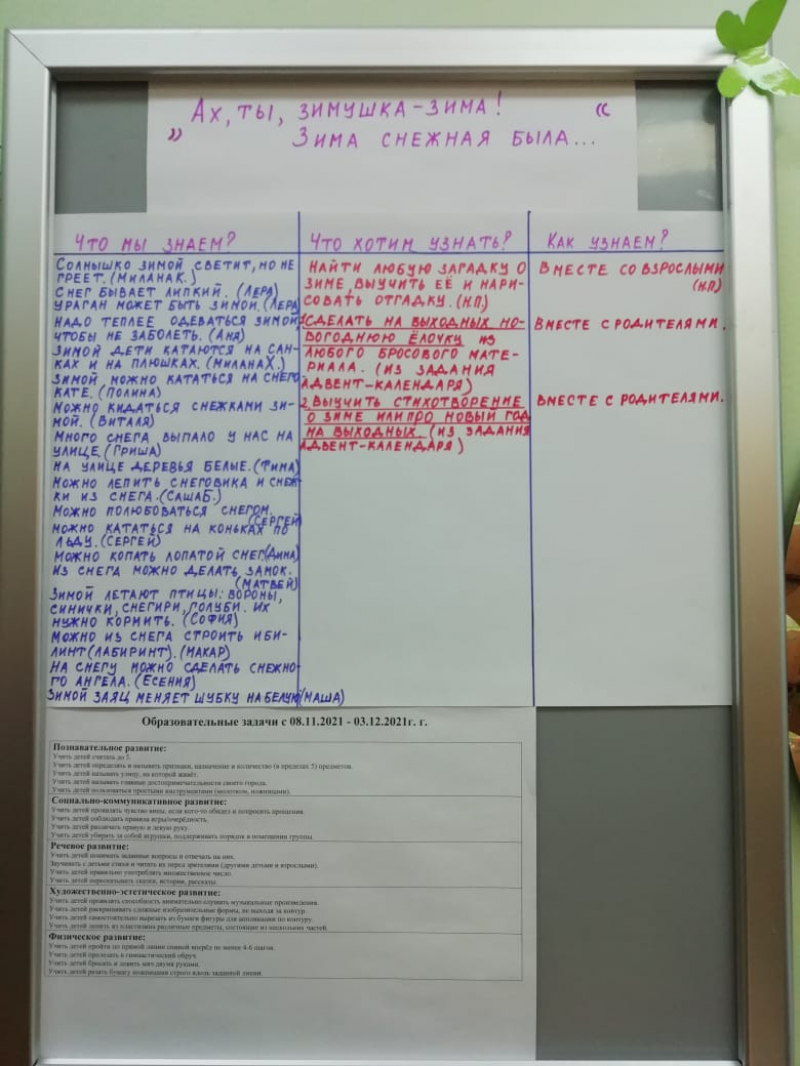 Ах, ты, зимушка-зима! “
” Зима снежная была...
Что мы знаем?
Солнышко зимой светит, но не
греет. (Милана К.)
Снег бывает липкий. (Лера)
Ураган может быть зимой. (Лера)
Надо теплее одеваться зимой,
чтобы не заболеть. (Аня)
Зимой дети катаются на сан-
ках и на плюшках. (Милана Х.)
Зимой можно кататься на снего-
кате. (Полина)
Можно кидаться снежками зи-
мой. (Виталя)
Много снега выпало у нас на
улице. (Гриша)
На улице деревья белые. (Тима)
Можно лепить снеговика и снеж-
ки из снега. (Саша Б.)
Можно полюбоваться снегом.
(Сергей)
Можно кататься на коньках по
льду. (Сергей)
Можно копать лопатой снег. (Дина)
Из снега можно делать замок.
(Матвей)
Зимой летают птицы: вороны,
синички, снегири, голуби. Их
нужно кормить. (София)
Можно из снега строить иби-
линт (лабиринт). (Макар)
На снегу можно сделать снежно-
го ангела. (Есения)
Зимой заяц меняет шубку на белую (Маша)
Что хотим узнать?
Найти любую загадку о
зиме, выучить её и нари-
совать отгадку. (Н.П.)
1. Сделать на выходных но-
вогоднюю ёлочку из
любого бросового мате-
риала. (Из задания
Адвент-календаря)
2. Выучить стихотворение
о зиме или про новый год
на выходных. (Из задания
Адвент-календаря)
Как узнаем?
Вместе со взрослыми
(Н.П.)
Вместе с родителями.
Вместе с родителями.
Образовательные задачи с 08.11.2021 - 03.12.2021г. г.
Познавательное развитие:
Учить детей считать до 5.
Учить детей определять и называть признаки, назначение и количество (в пределах 5) предметов.
Учить детей называть улицу, на которой живёт.
Учить детей называть главные достопримечательности своего города.
Учить детей пользоваться простыми инструментами (молотком, ножницами).
Социально-коммуникативное развитие:
Учить детей проявлять чувство вины, если кого-то обидел и попросить прощения.
Учить детей соблюдать правила игры/очерёдность.
Учить детей различать правую и левую руку.
Учить детей убирать за собой игрушки, поддерживать порядок в помещении группы.
Речевое развитие:
Учить детей понимать заданные вопросы и отвечать на них.
Заучивать с детьми стихи и читать их перед зрителями (другими детьми и взрослыми).
Учить детей правильно употреблять множественное число.
Учить детей пересказывать сказки, истории, рассказы.
Художественно-эстетическое развитие:
Учить детей проявлять способность внимательно слушать музыкальные произведения.
Учить детей раскрашивать сложные изобразительные формы, не выходя за контур.
Учить детей самостоятельно вырезать из бумаги фигуры для аппликации по контуру.
Учить детей лепить из пластилина различные предметы, состоящие из нескольких частей.
Физическое развитие:
Учить детей пройти по прямой линии спиной вперёд не менее 4-6 шагов.
Учить детей пролезать в гимнастический обруч.
Учить детей бросать и ловить мяч двумя руками.
Учить детей резать бумагу ножницами строго вдоль заданной линии.